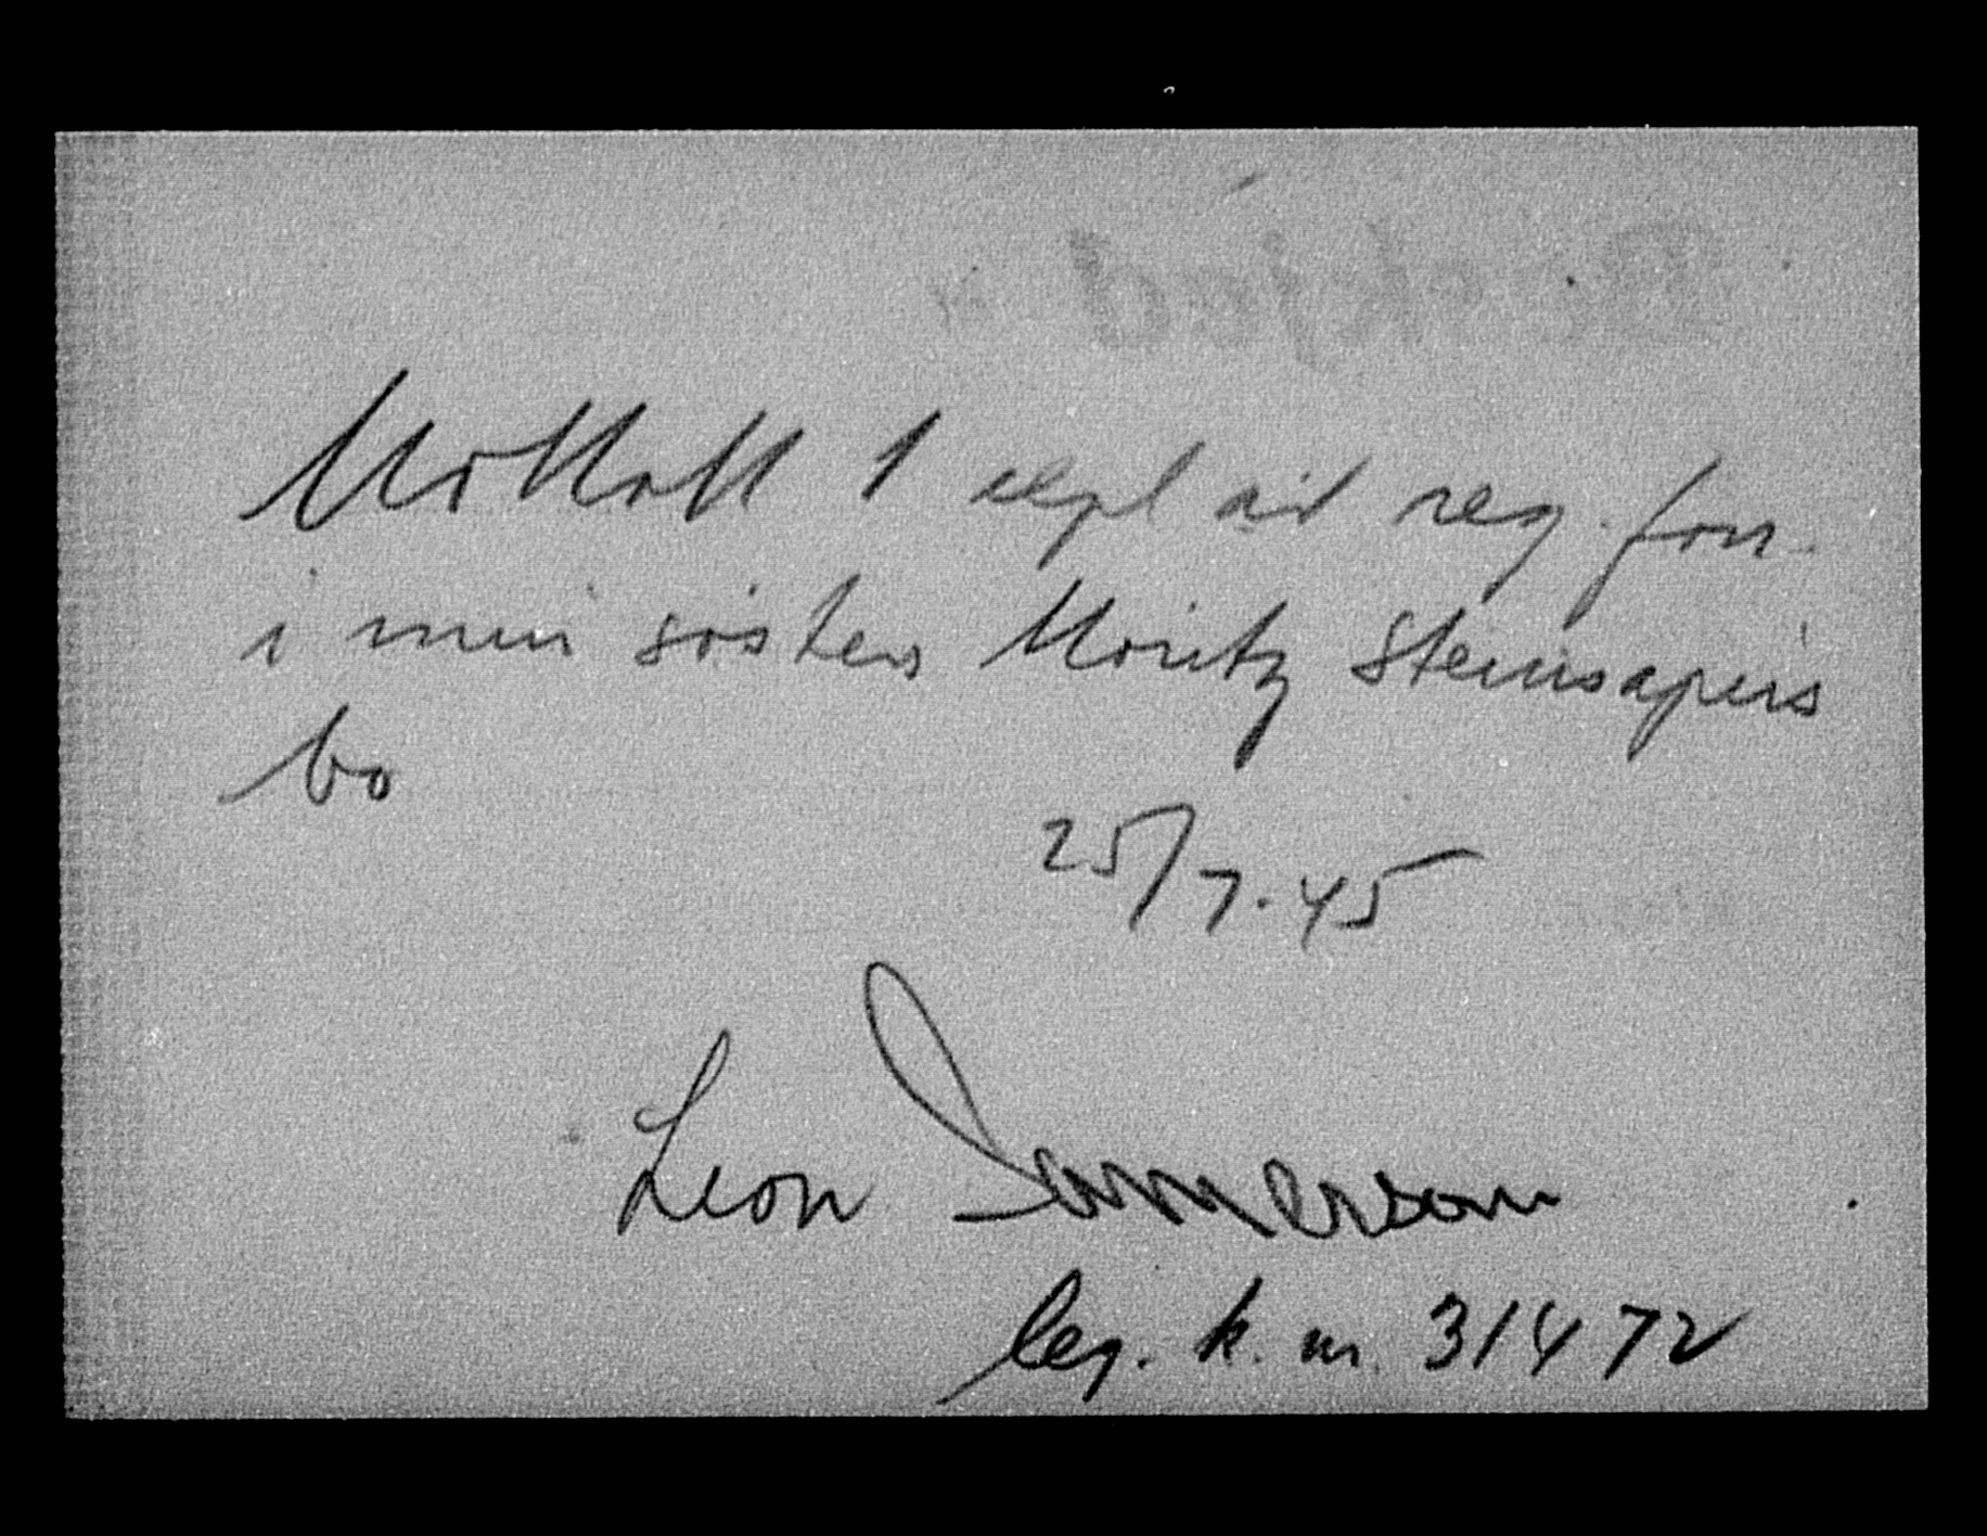 Mottatt 1 expl av reg. forr.
i min søsters Moritz Steinsapirs
bo
25/7.45
Leon Jamerson
leg. k. nr. 31472